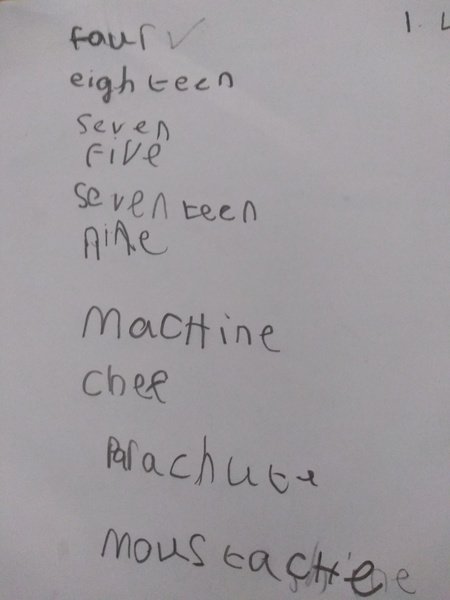 four ✓ 1. L
eighteen
seven
five
seventeen
nine
MacHine
chef
Parachute
moustacHe